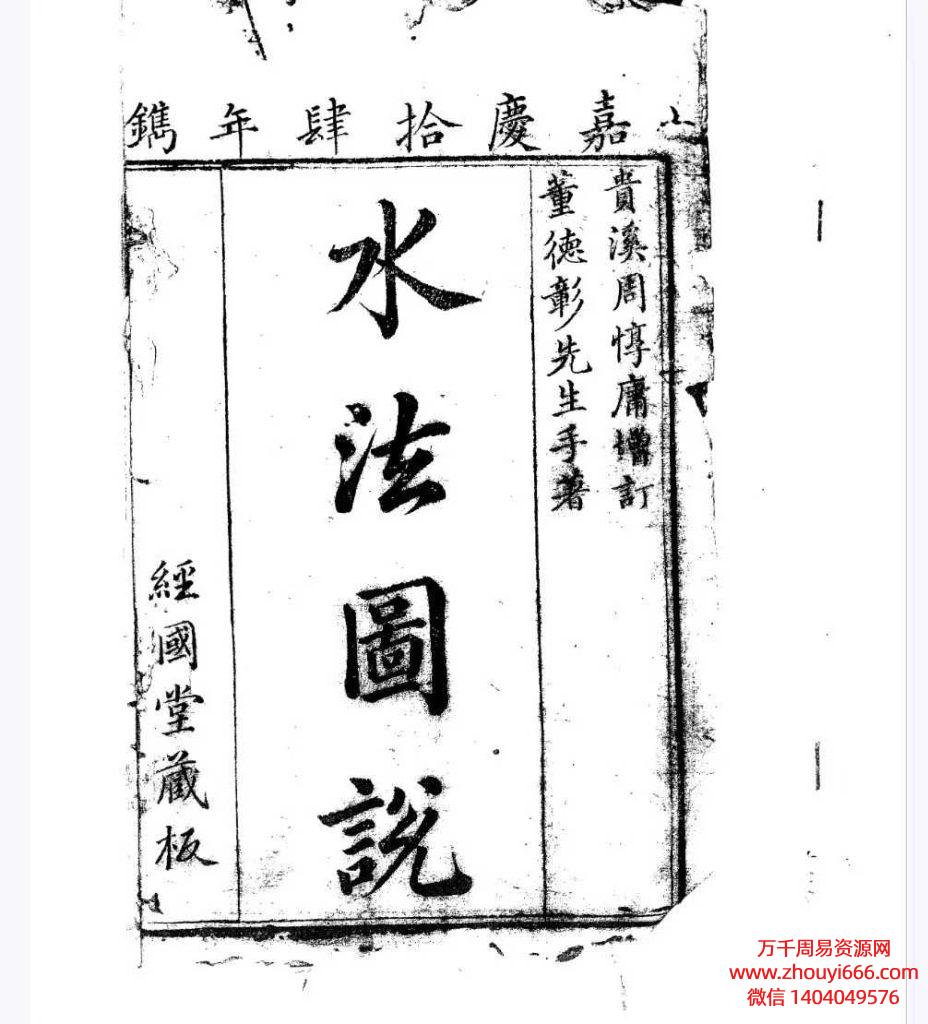 嘉慶拾肆年鐫
貴溪周惇庸增訂
董德彰先生手著
水法圖說
經國堂藏板
万千周易资源网
www.zhouyi666.com
微信 1404049576